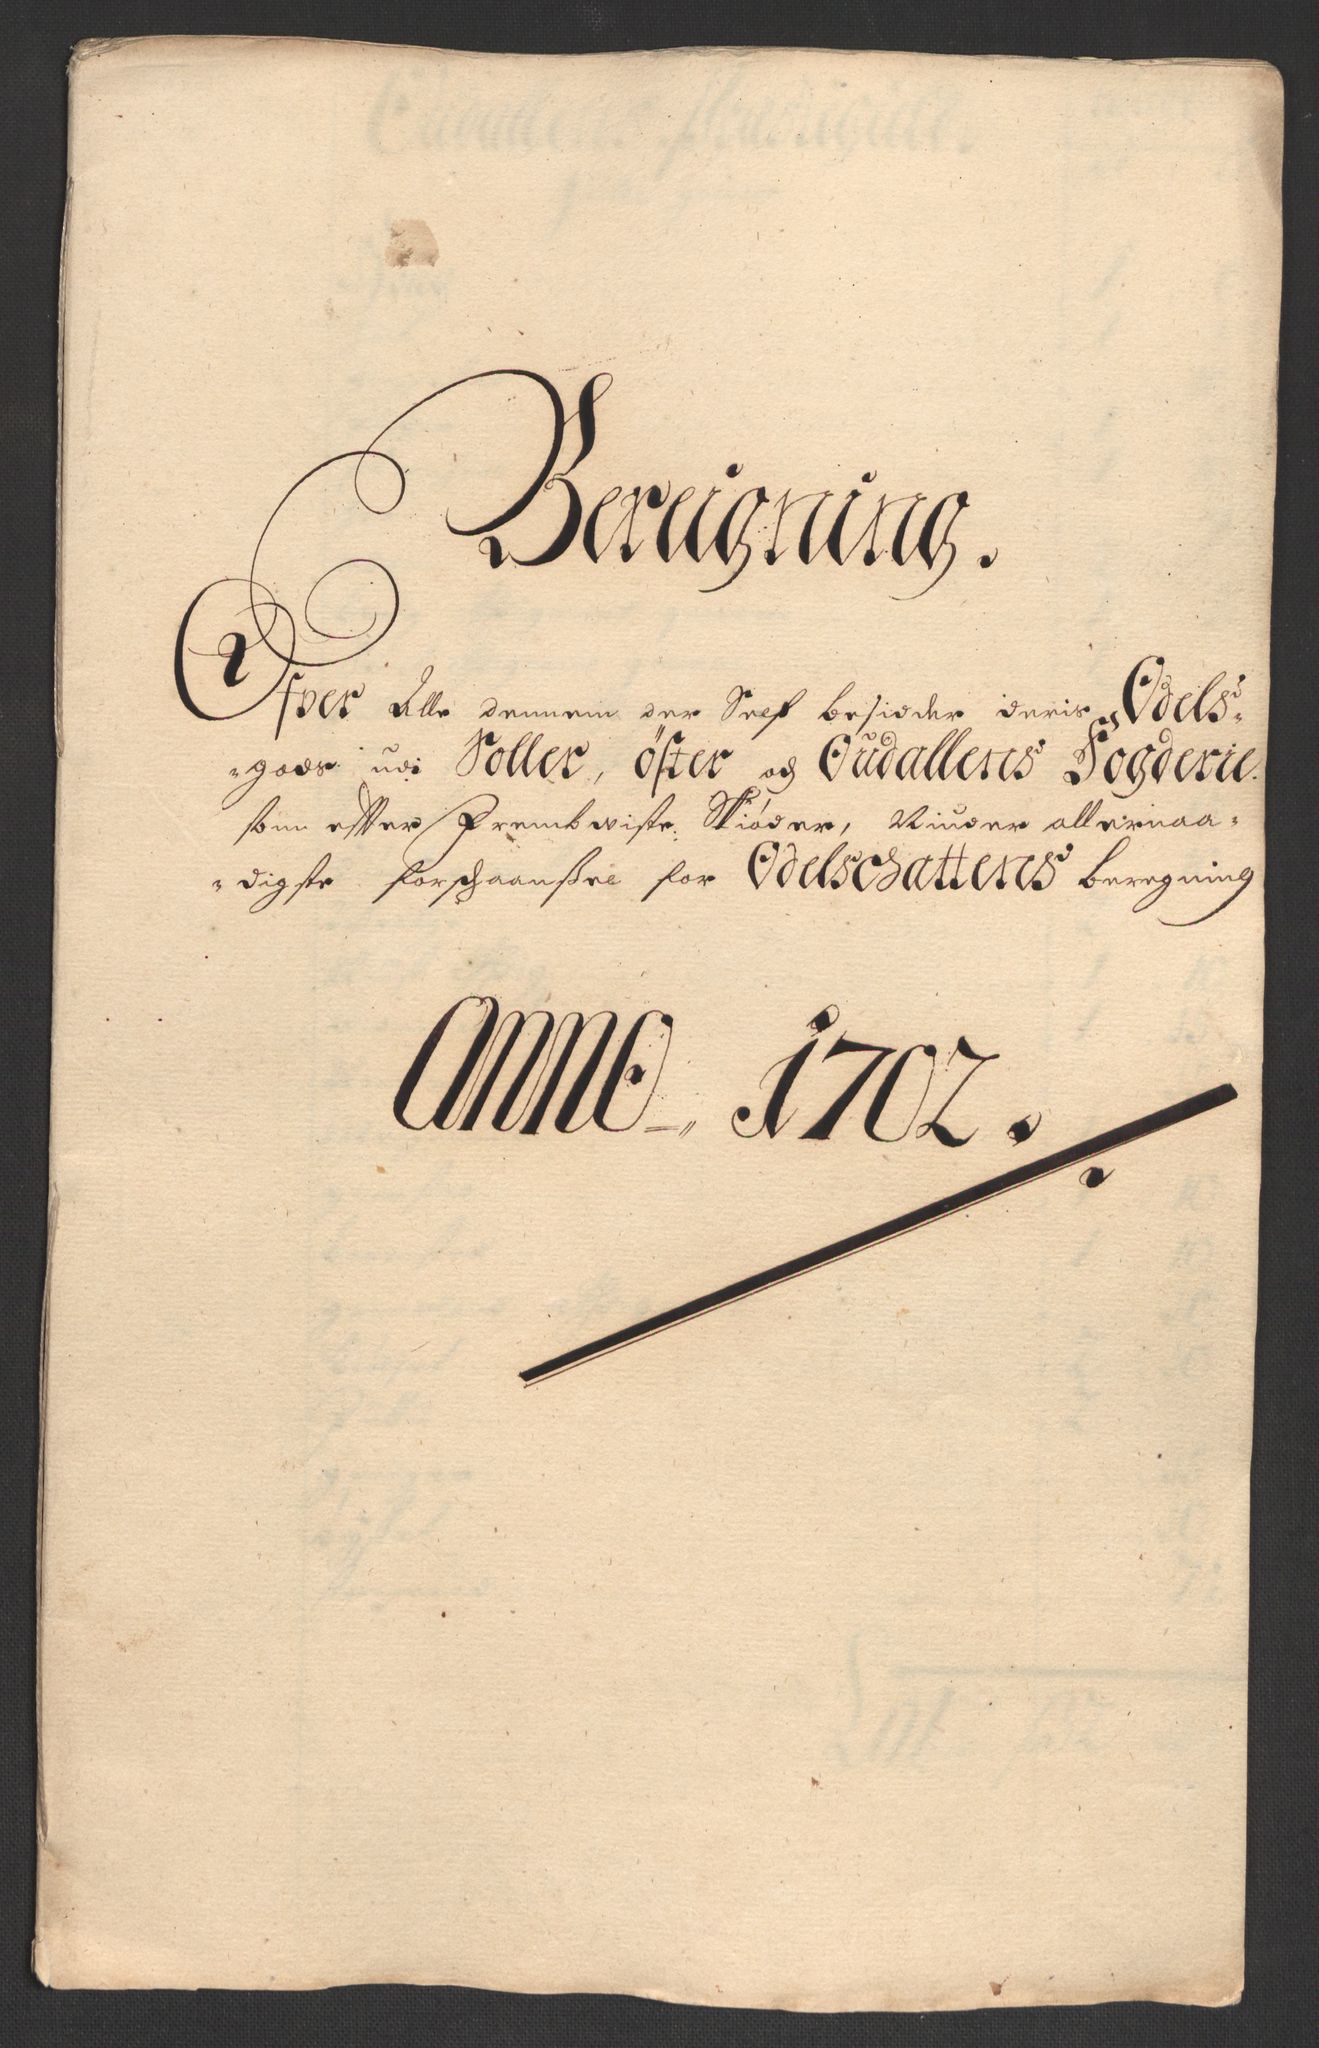 Bereigning.
Ofver Alle dennem der Self besidder deris Odels-
-gods udi Soller, öster og Oudallens Fogderie.
som effter Frembviste Skiøder, Niuder allernaa-
-digste forschaanßel for Odelschattens beregning
ANNO 1702.